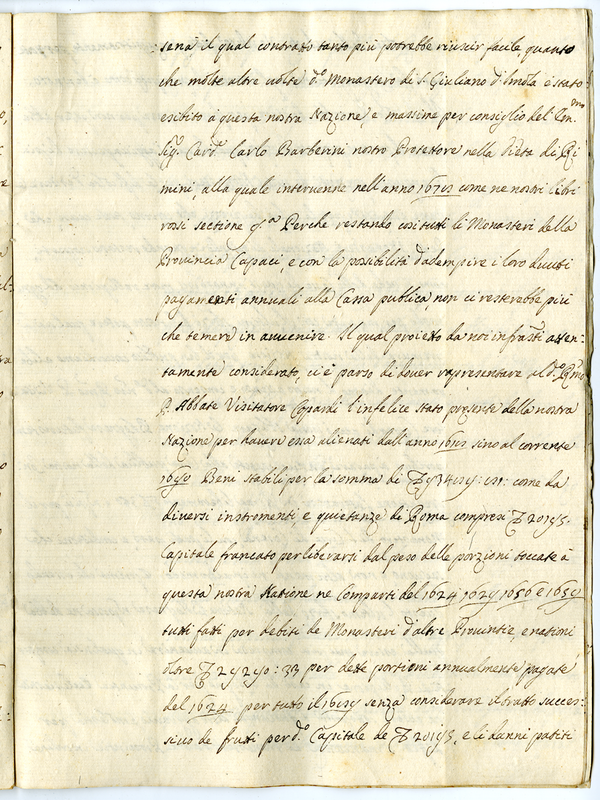 sena, il qual contratto tanto più potrebbe riuscir facile quanto
che molte altre uolte d.º Monastero di S. Giuliano d'Imola è stato
esibito à questa nostra Nazione, e massime per consiglio del'
Sig. Card. Carlo Barberini nostro Protettore nella dieta di Ri
mini, alla quale interuenne nell'anno come ne nostri libri
rossi sectione Perche restando cosi tutti li Monasteri della
Prouincia Capaci, e con la possibilità d'adempire i loro douuti
pagamenti annuali alla Cassa publica, non ci resterebbe più
che temere in auuenire. Il qual proietto da noi infrasti atten:
tamente considerato, ci è parso di douer rapresentare al d.º Rmo
P. Abbate Visitatore Copardi l'infelice stato presente della nostra
Nazione per hauere essa alienati dall'anno sino al corrente
Beni stabili per la somma di come da
diuersi instromenti e quietanze di Roma compresi
Capitale francato per liberarsi dal peso delle porzioni toccate à
questa nostra Natione ne Comparti del 1624 1629 1656 e 1659
tutti fatti per debiti de Monasteri d'altre Prouintie, e nationi
oltre per dette portioni annualmente pagate
del 1624 per tutto il senza considerare il tratto succes:
siuo de frutti per d.º Capitale de e li danni patiti